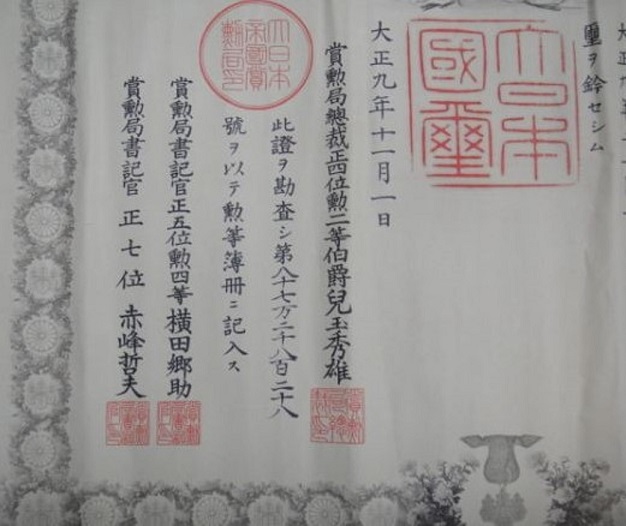 璽ヲ鈐セシム
大日本
國璽
大正九年十一月一日
賞勲局總裁正四位勲二等伯爵兒玉秀雄
大日本
帝國賞
勲局印
此證ヲ勘査シ第八十七万二千八百二十八
號ヲ以テ勲等簿冊ニ記入ス
賞勲局書記官正五位勲四等横田郷助
賞勲局書記官正七位赤峰哲夫